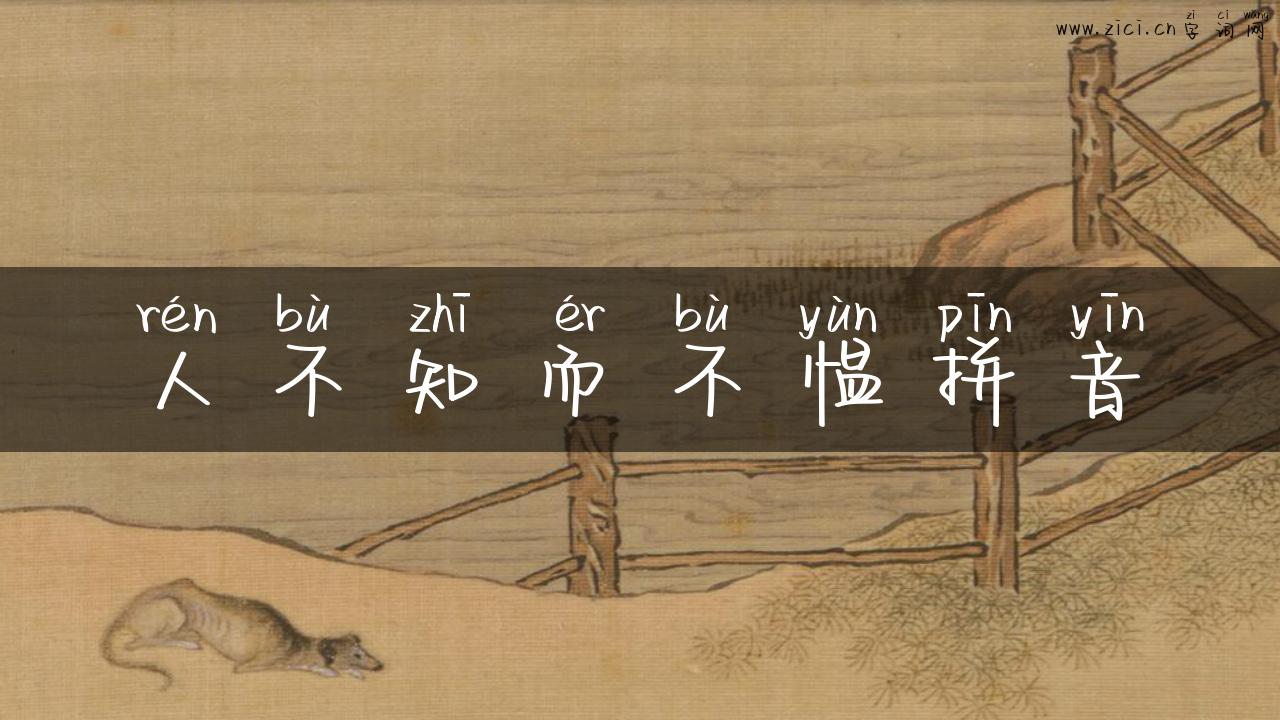 zi ci wang
www.zici.cn字词网
rén bù zhī ér bù yùn pīn yīn
人不知而不愠拼音